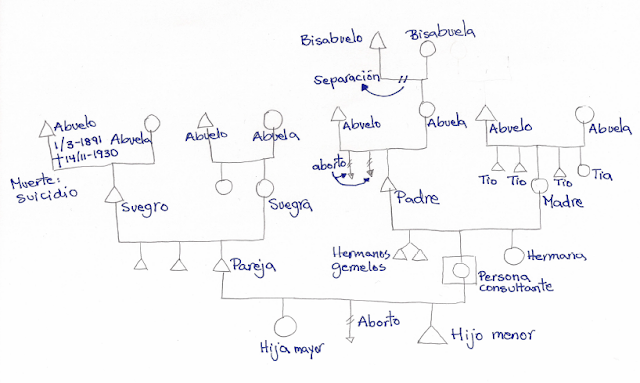 Bisabuelo
Bisabuela
separación
Abuelo
1/3-1891
†14/11-1930
Muerte:
suicidio
Abuela
Abuelo
Abuela
Abuelo
Abuela
Abuelo
Abuela
aborto
Suegro
Suegra
Padre
Tío
Tío
Tío
Tía
Madre
Pareja
Hermanos
gemelos
Hermana
Persona
consultante
Hija mayor
Aborto
Hijo menor